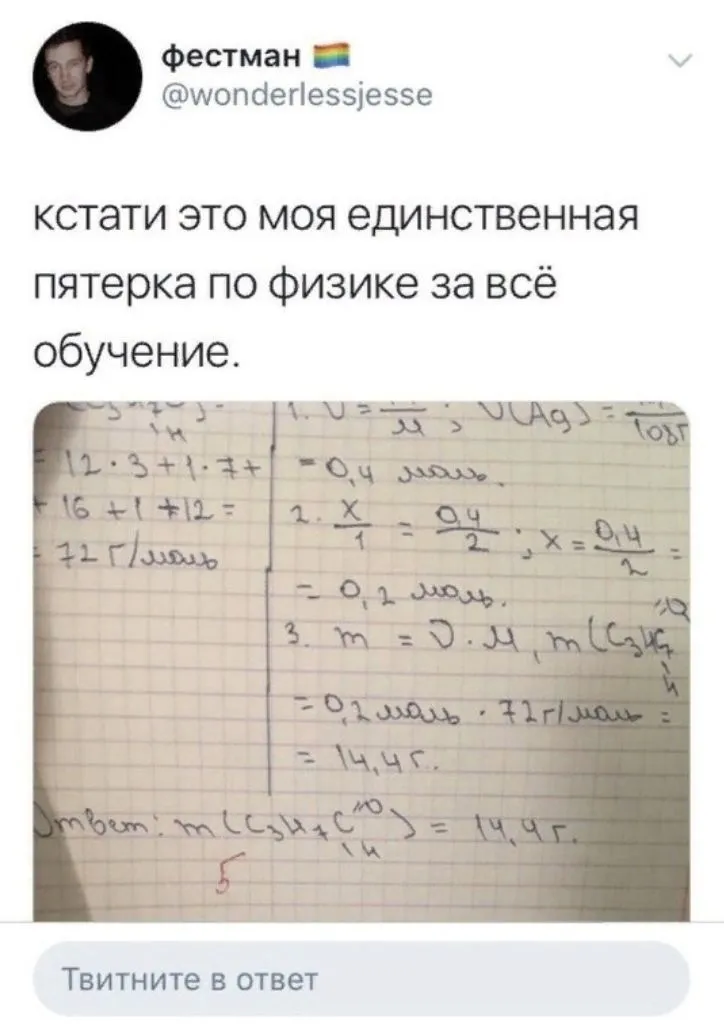 фестман 🏳️‍🌈
@wonderlessjesse
кстати это моя единственная
пятерка по физике за всё
обучение.
= 12·3+1·7+
+16+1+12=
= 72 г/моль
1. ν = /M; ν(Ag) = /108г
= 0,4 моль.
2. x/1 = 0,4/2; x = 0,4/2 =
= 0,2 моль.
3. m = ν·M, m(C₃H₇
= 0,2 моль · 72 г/моль =
= 14,4 г.
Ответ: m(C₃H₇C=O\H) = 14,4 г.
5
Твитните в ответ